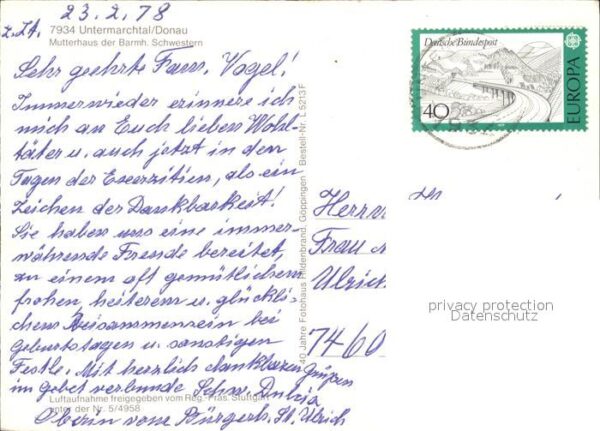 23.2.78
z. Zt.
7934 Untermarchtal/Donau
Mutterhaus der Barmh. Schwestern
Sehr geehrte Fam. Vogel!
Immerwieder erinnere ich
mich an Euch lieben Wohl-
täter u. auch jetzt in den
Tagen der Exerzitien, als ein
Zeichen der Dankbarkeit!
Sie haben uns eine immer-
währende Freude bereitet,
zu einem oft gemütlichem
frohen, heiterem u. glückli-
chem Beisammensein bei
Geburtstagen u. sonstigen
Festle. Mit herzlich dankbaren Grüßen
im Gebet verbunden Schw.
Oberin vom Bürgerh. St. Ulrich
Luftaufnahme freigegeben vom Reg.-Präs. Stuttgart
unter der Nr. 5/4958
40 Jahre Fotohaus Hildenbrand, Göppingen Bestell-Nr. L 5213 F
Deutsche Bundespost
40
EUROPA
Herrn
Frau
Ulrich
7460
privacy protection
Datenschutz